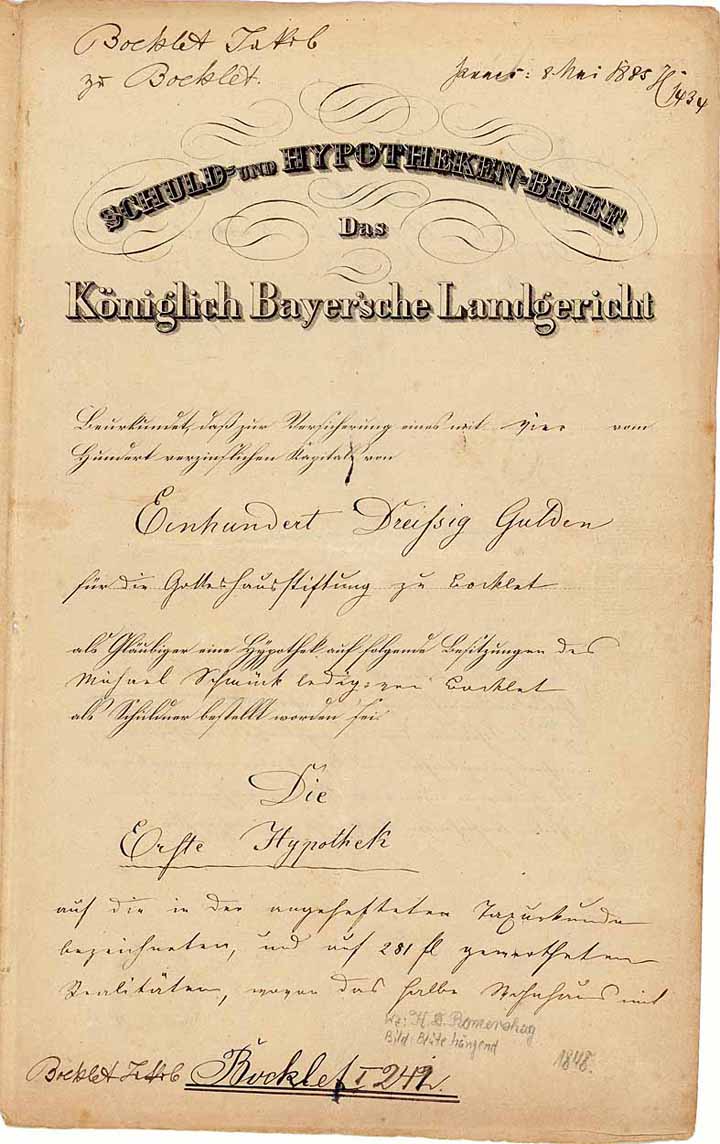 Bocklet Jakob
zu Bocklet.
praes: 8 Mai 1885 H 1434
SCHULD- UND HYPOTHEKEN-BRIEF.
Das
Königlich Bayer'sche Landgericht
Beurkundet, daß zur Versicherung eines mit vier vom
Hundert verzinslichen Kapitals von
Einhundert Dreissig Gulden
für die Gotteshausstiftung zu Bocklet
als Gläubiger eine Hypothek auf folgende Besitzungen des
Michael Schmück ledig von Bocklet
als Schuldner bestellt worden sei:
Die
Erste Hypothek
auf die in der angehefteten Taxurkunde
bezeichneten, und auf 281 fl gewertheten
Realitäten, wovon das halbe Wohnhaus mit
Wz: H. S. Romershag
Bild: Blüte hängend
1848.
Bocklet Jakob Bocklet I 249.